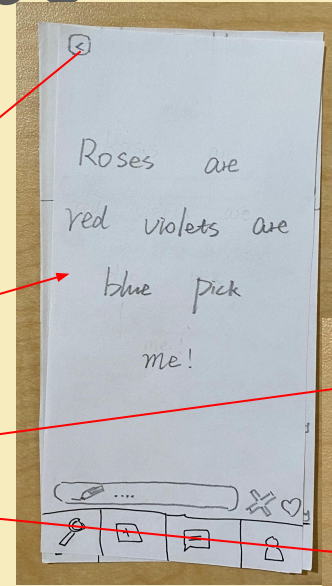 <
Roses are
red violets are
blue pick
me!
....